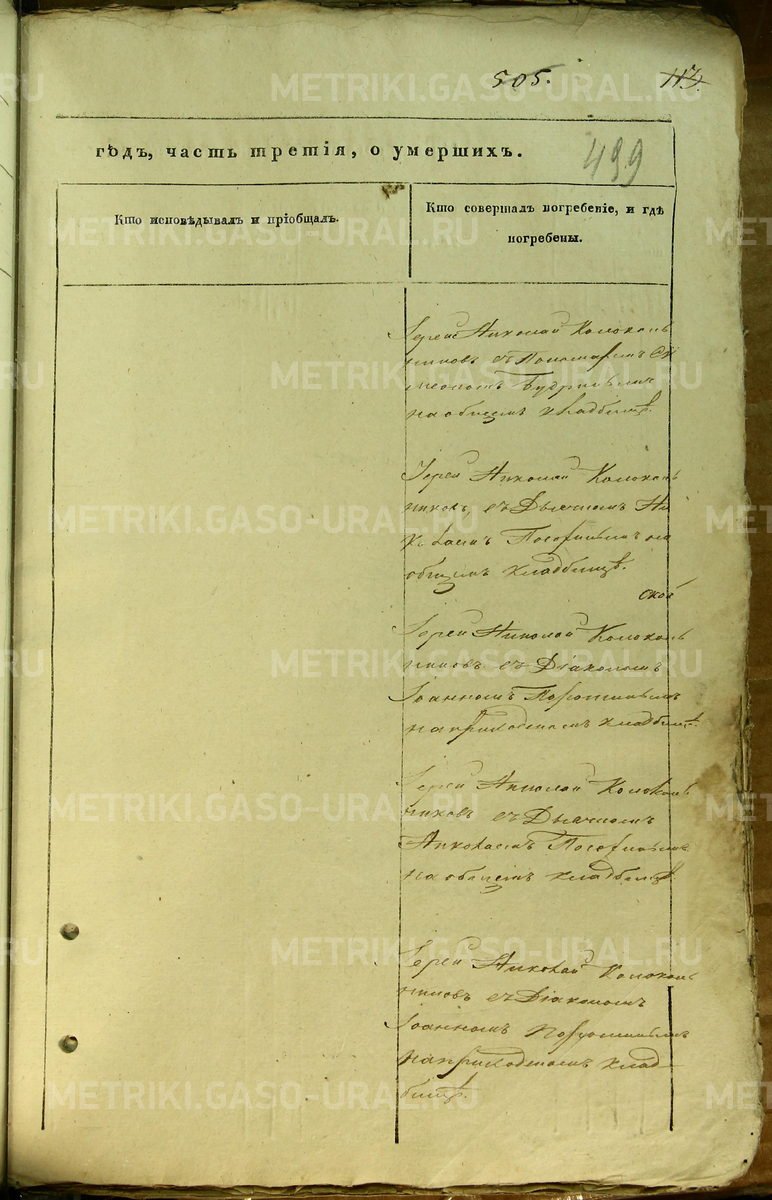 505.
113.
499
гѣдъ, часть третія, о умершихъ.
Кто исповѣдывалъ и пріобщалъ.
Кто совершалъ погребеніе, и гдѣ
погребены.
Іерей Николай Колоколь
никовъ съ Пономаремъ Си
меономъ
на общемъ кладбищѣ.
Іерей Николай Колоколь
никовъ, съ Дьячкомъ Ни
колаемъ на
общемъ кладбищѣ.
Іерей Николай Колоколь
никовъ съ Діакономъ
Іоанномъ
на приходскомъ кладбищѣ.
Іерей Николай Колоколь
никовъ съ Дьячкомъ
Николаемъ
на общемъ кладбищѣ.
Іерей Николай Колоколь
никовъ съ Діакономъ
Іоанномъ
на приходскомъ клад-
бищѣ.
METRIKI.GASO-URAL.RU